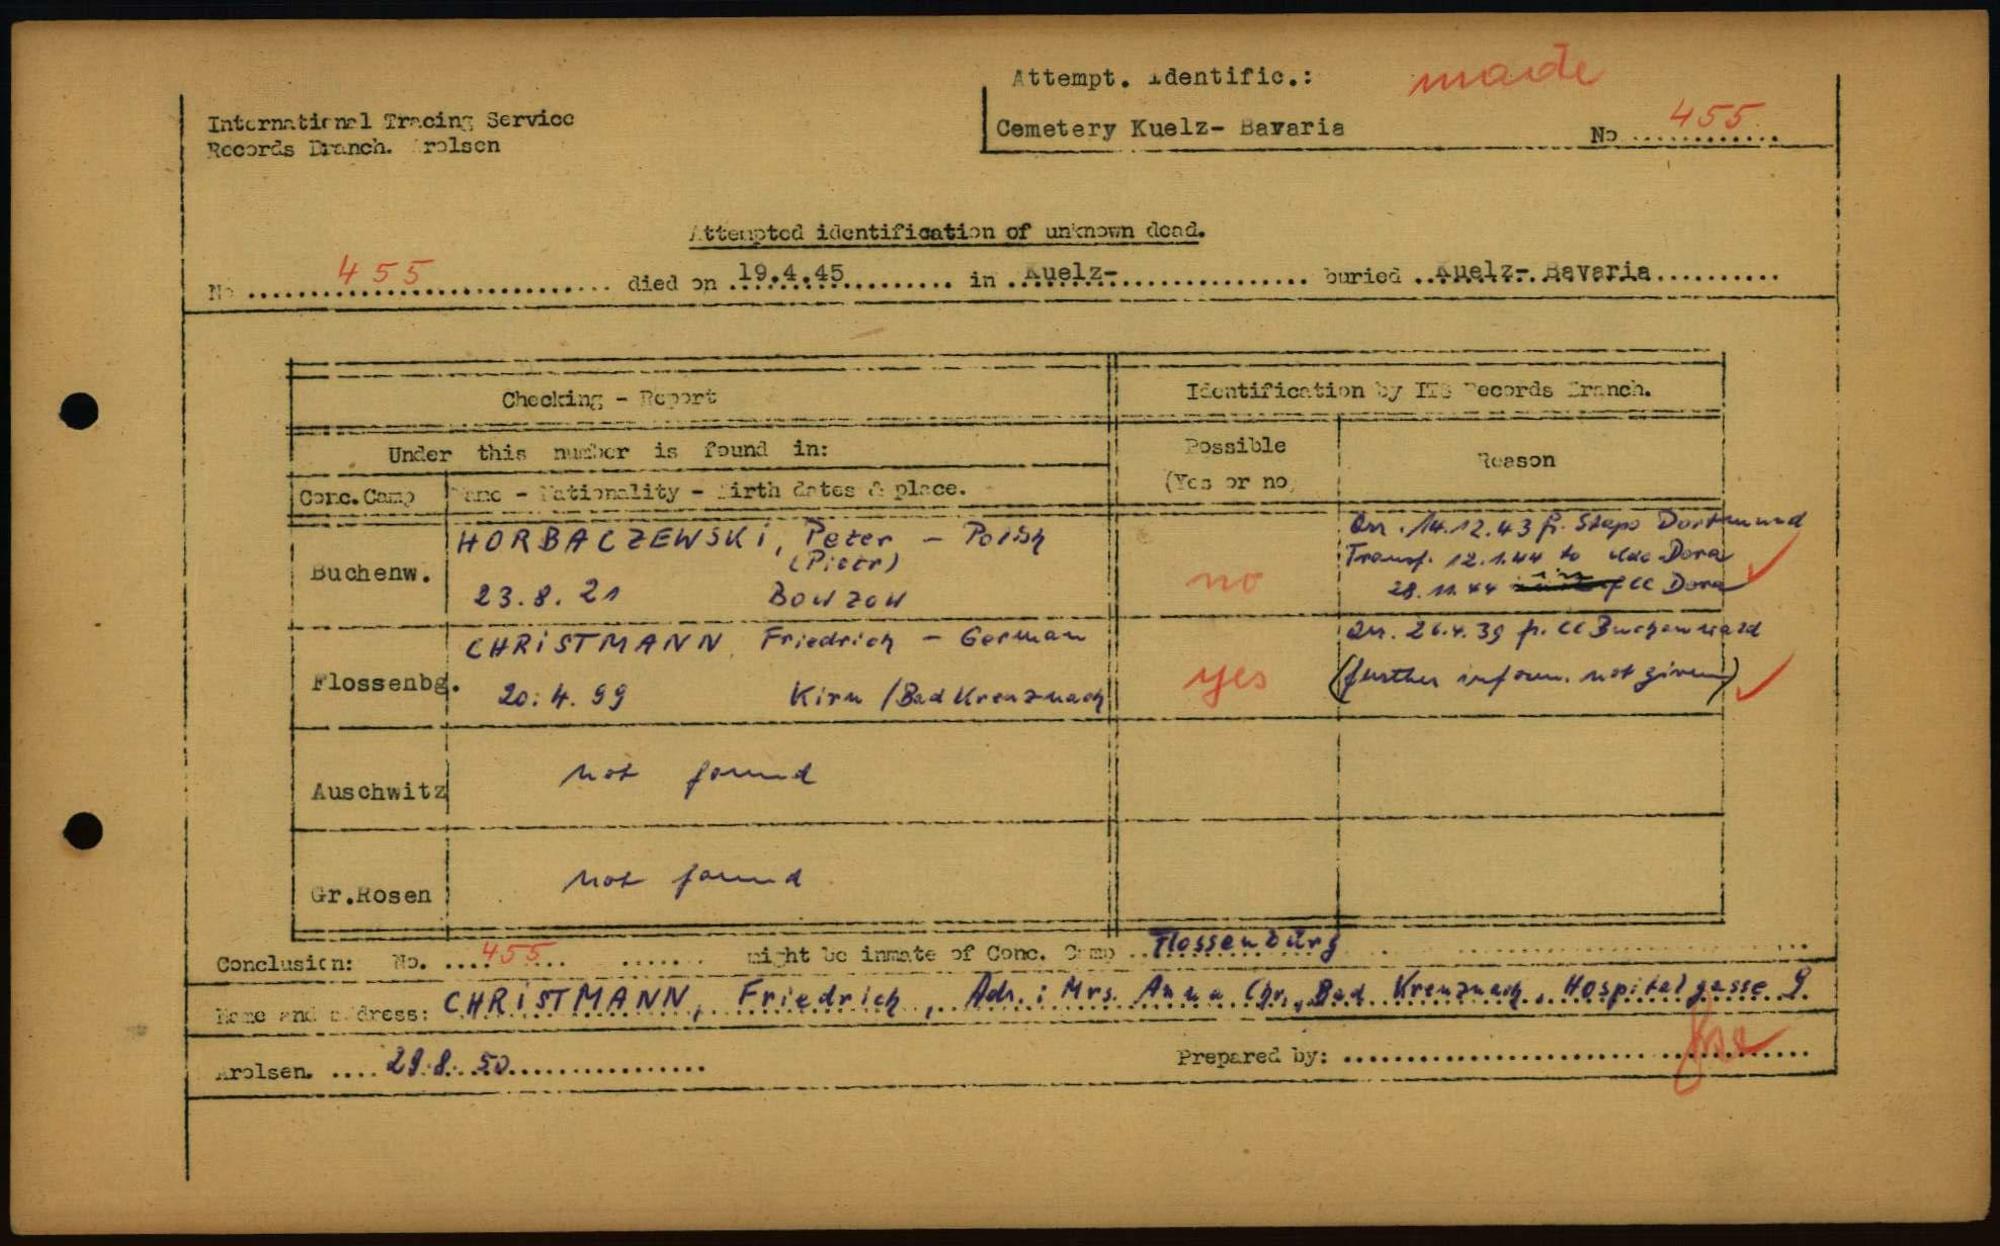 Attempt. Identific.: made
International Tracing Service
Records Branch. Arolsen
Cemetery Kuelz- Bavaria No ........... 455
Attempted identification of unknown dead.
No 455 died on 19.4.45 in Kuelz- buried Kuelz-. Bavaria
Checking - Report
Identification by ITS Records Branch.
Under this number is found in:
Possible
(Yes or no)
Reason
Conc.Camp Name - Nationality - Birth dates & place.
Buchenw.
HORBACZEWSKI, Peter - Polish
(Piotr)
23.8.21
no
Arr. 14.12.43 fr. Stapo Dortmund
Transf. 12.1.44 to Kdo Dora
28.11.44 CC Dora
Flossenbg.
CHRISTMANN Friedrich - German
20.4.99 Kirn /Bad Kreuznach
yes
Arr. 26.4.39 fr. CC Buchenwald
(further inform. not given)
Auschwitz not found
Gr.Rosen not found
Conclusion: No. 455 might be inmate of Conc. Camp Flossenbürg
Name and address: CHRISTMANN, Friedrich, Adr.: Mrs. Anna Chr., Bad Kreuznach, Hospitalgasse 9.
Arolsen. 29.8.50
Prepared by: